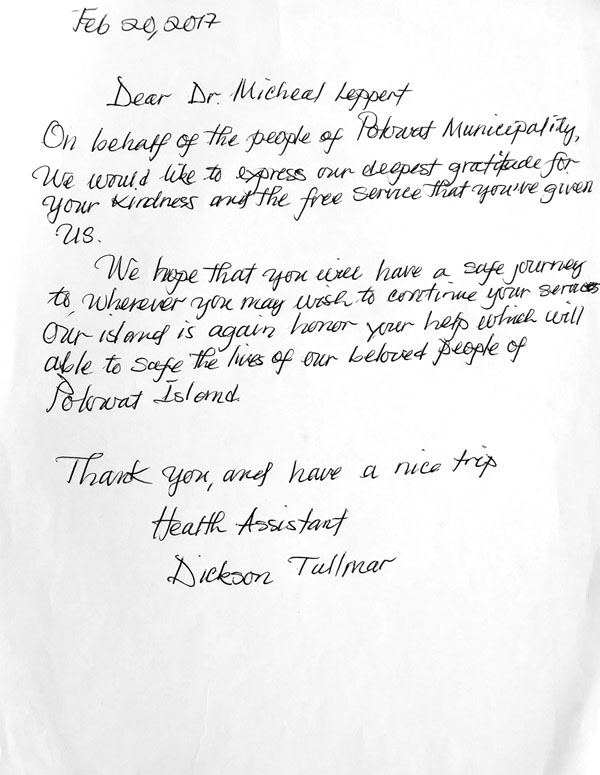 Feb 20, 2017
Dear Dr. Micheal Leppert
On behalf of the people of Polowat Municipality,
We would like to express our deepest gratitude for
your kindness and the free service that you've given
us.
We hope that you will have a safe journey
to, wherever you may wish to continue your services
Our island is again honor your help which will
able to safe the lives of our beloved people of
Polowat Island.
Thank you, and have a nice trip
Health Assistant
Dickson Tullmar